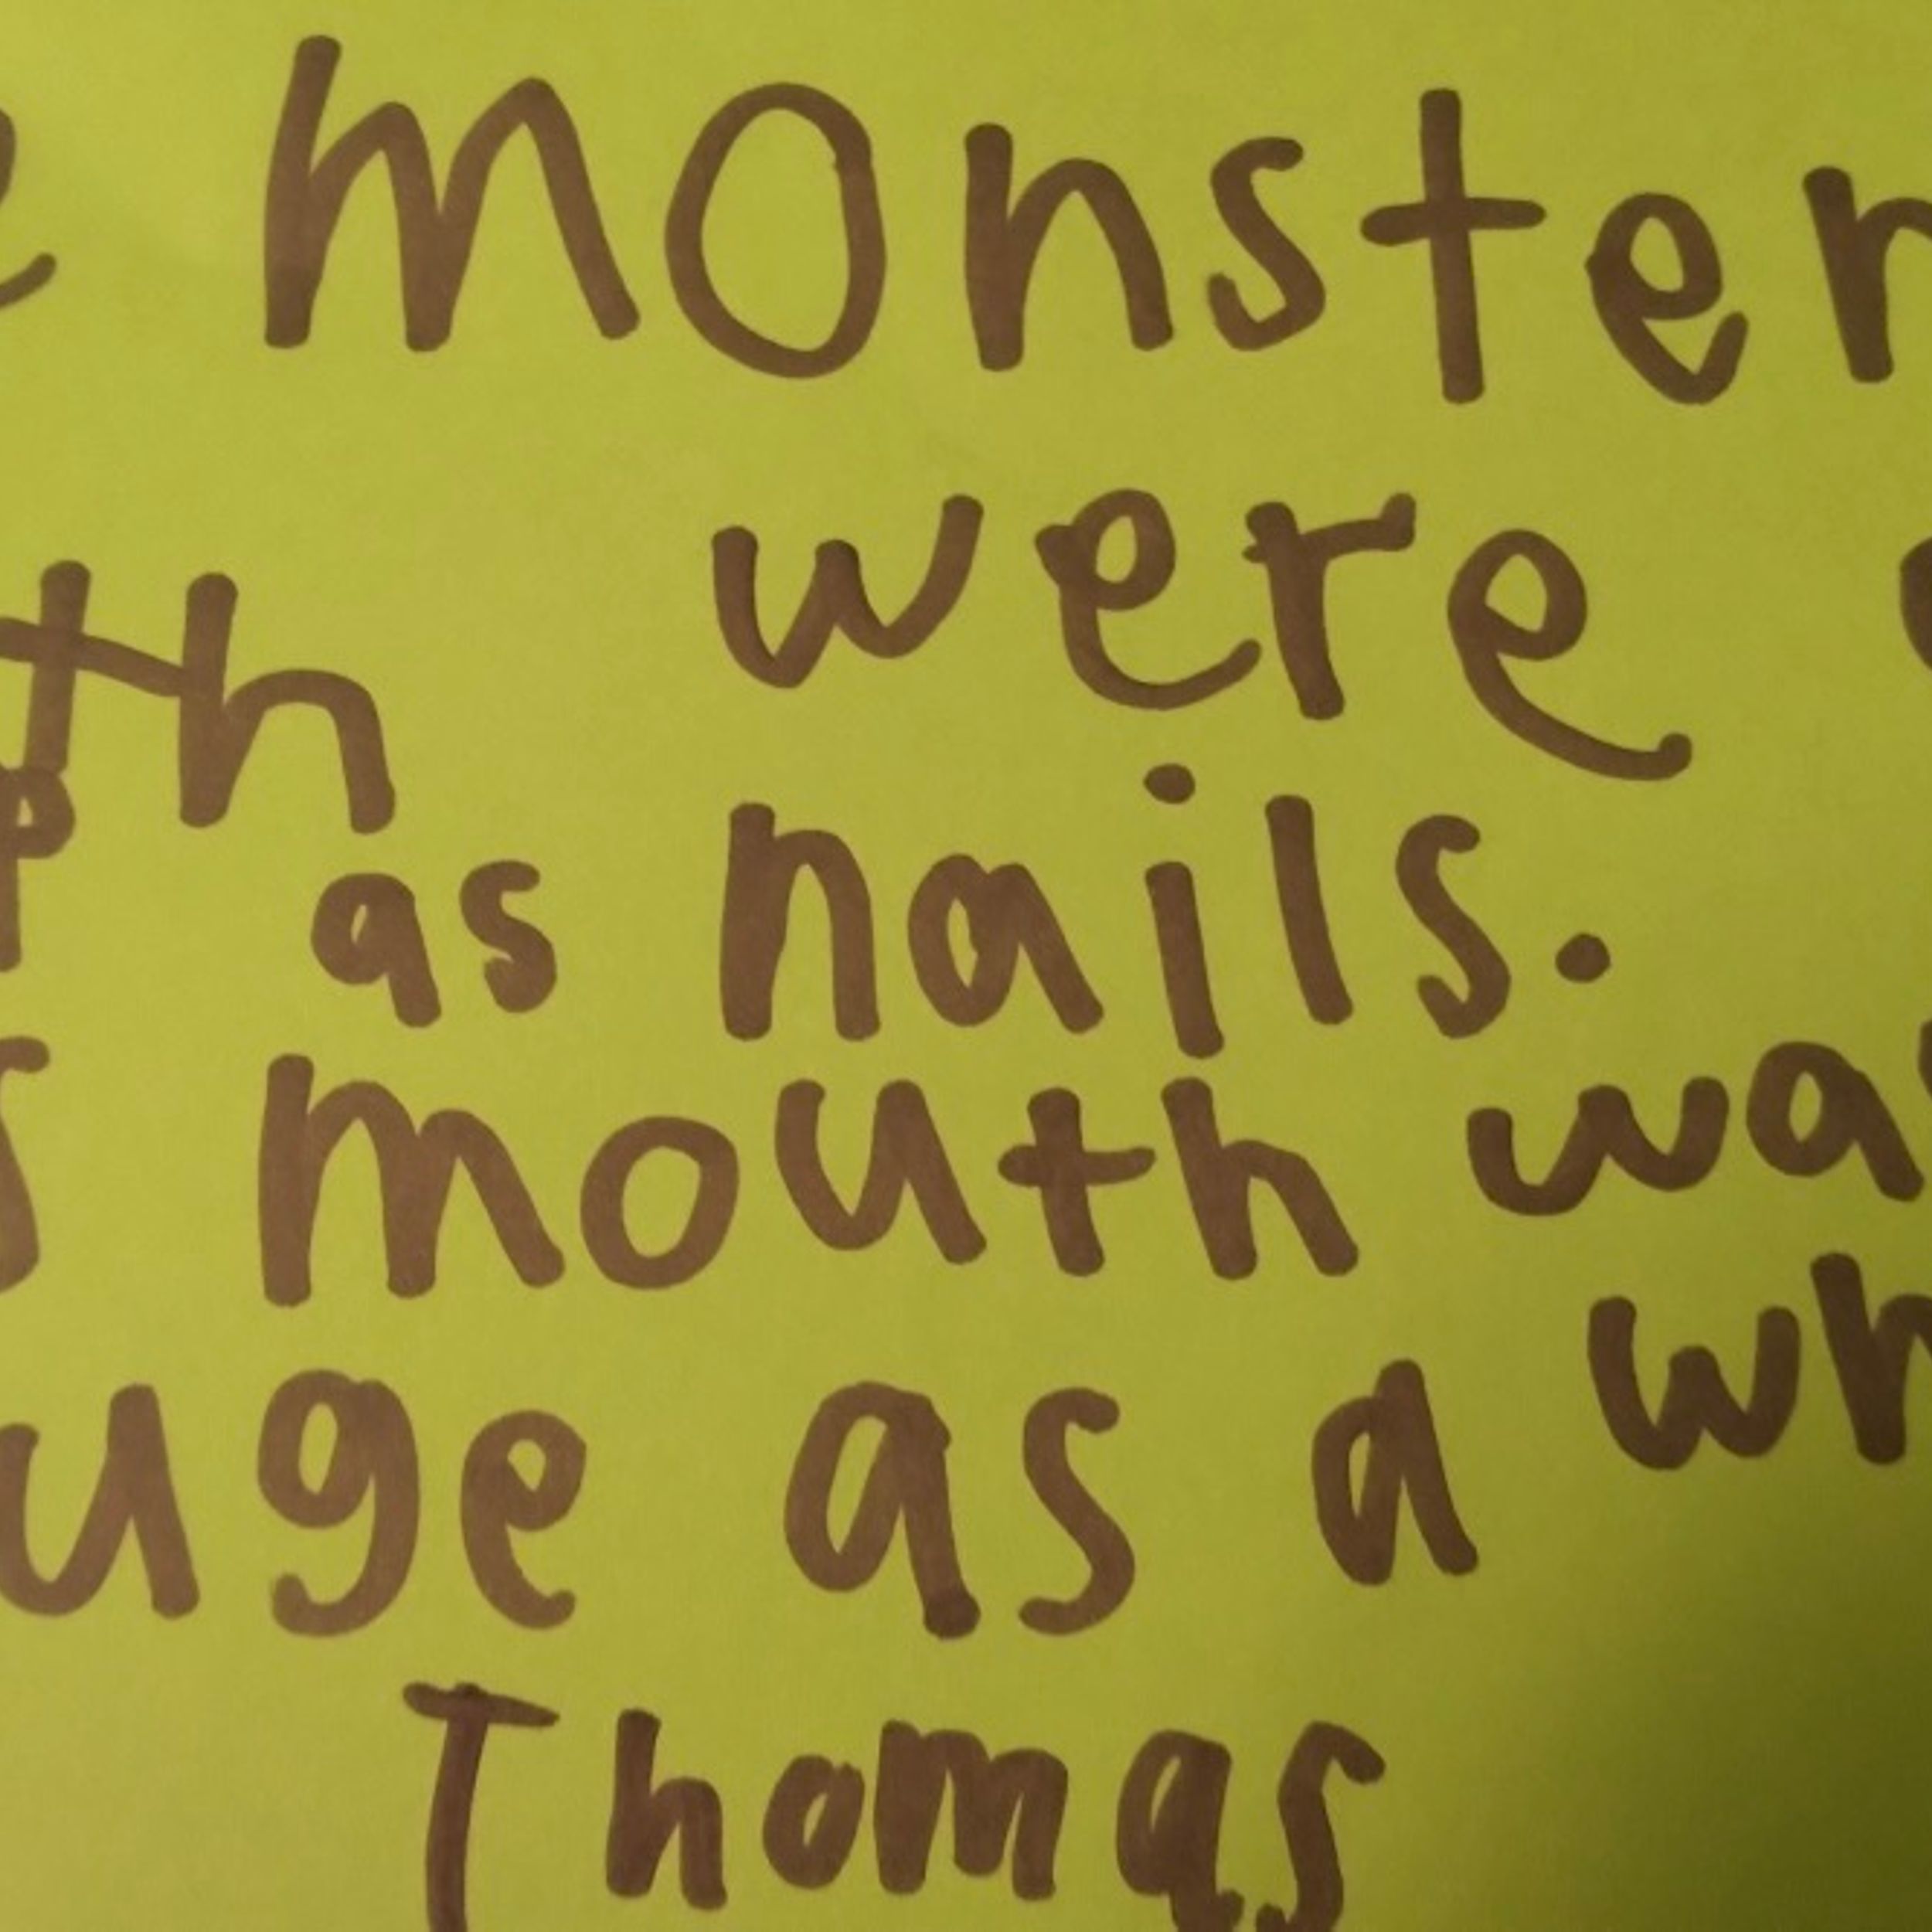 e monster
th were
p as nails.
s mouth was
uge as a wh
Thomas